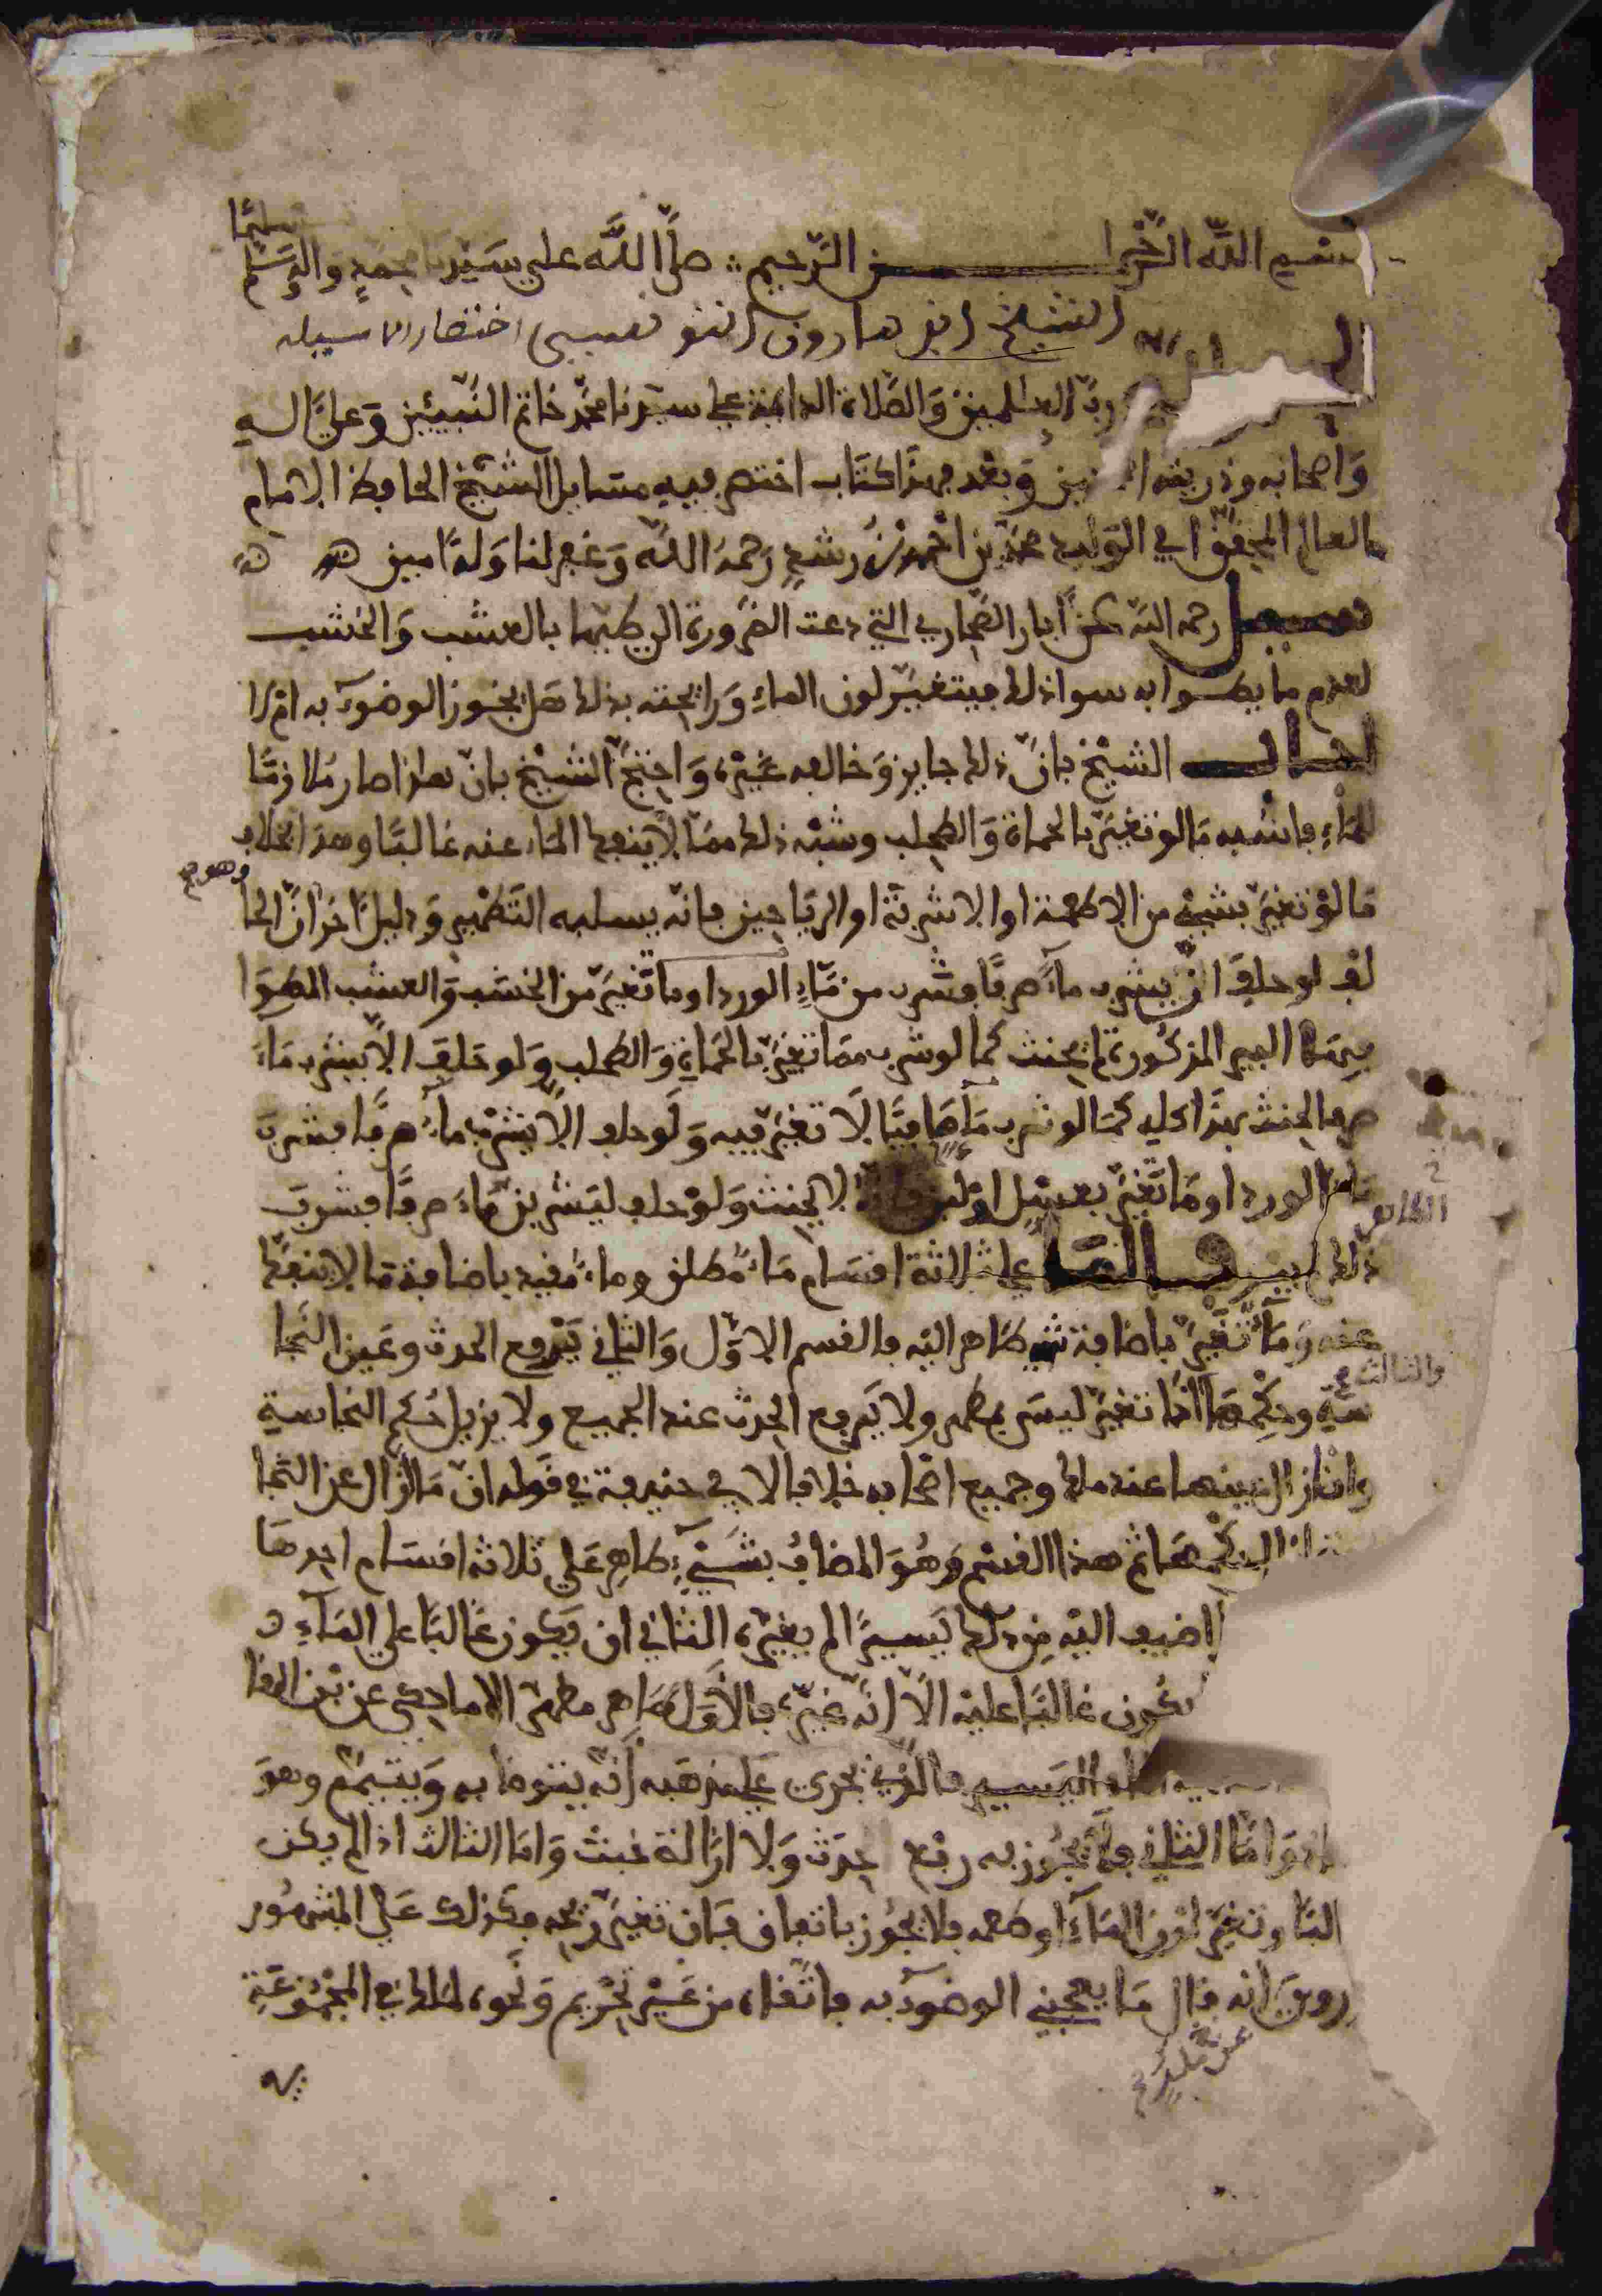 بسم الله الرحمن الرحيم صلى الله على سيدنا محمد واله وسلم تسليما
الشيخ ابن هارون التونسي اختصار الاسيله
رب العلمين والصلاة الدايمة على سيدنا محمد خاتم النبيين وعلى اله
واصحابه وذريته وبعد فهذا كتاب اختصر فيه مسايل الشيخ الحافظ الامام
العالم المحقق ابي الوليد محمد بن احمد بن رشد رحمه الله وغفر لنا وله امين
رحمه الله عن ابار الصحاري التي دعت الضرورة الى طيها بالعشب والخشب
لعدم ما يطوا به سوا ذلك فيتغير لون الماء ورايحته بذلك هل يجوز الوضوء به ام لا
الشيخ بان ذلك جايز وخالفه غيره واحتج الشيخ بان هذا صار ملازما
للماء فاشبه ما لو تغير بالحماة والطحلب وشبه ذلك مما لا ينفك الماء عنه غالبا وهذا بخلاف
ما لو تغير بشيء من الاطعمة او الاشربة او الرياحين فانه يسلبه التطهير ودليل اخر ان الحا
وهو
لف لو حلف ان يشرب ماء صرفا فشرب من ماء الورد او ما تغير من الخشب والعشب المطوا
بهما البير المذكورة لم يحنث كما لو شرب مما تغير بالحماة والطحلب ولو حلف الا يشرب ماء
صرفا لحنث بهذا كله كما لو شرب ماء صافيا لا تغير فيه ولو حلف الا يشرب ماء صرفا فشرب
ماء الورد او ما تغير بعسل او لا يحنث ولو حلف ليشربن ماء صرفا فشرب
ذلك على ثلاثة اقسام ماء مطلق وماء مقيد باضافة ما لا ينفك
عنه وماء تغير باضافة شيء طاهر اليه فالقسم الاول والثاني يرفع الحدث وعين النجا
والثالث
سة وحكمها اذا تغير ليس بمطهر ولا يرفع الحدث عند الجميع ولا يزيل حكم النجاسة
وان زال عينها عند ملك وجميع اصحابه خلافا لابي حنيفة في قوله ان ما ازال عين النجا
حكمها ثم هذا القسم وهو المضاف بشيء طاهر على ثلاثة اقسام احدها
اضيف اليه من ذلك يسيرا لم يغيره الثاني ان يكون غالبا على الماء
يكون غالبا عليه الا انه غيره فالاول طاهر مطهر الا ما حكي عن
اليسير فالذي يجري على مذهبه انه يتوضا به ويتيمم وهو
واما الثاني فلا يجوز به رفع حدث ولا ازالة خبث واما الثالث اذا لم يكن
وتغير لون الماء او طعمه فلا يجوز باتفاق فان تغير ريحه فكذلك على المشهور
وروي انه قال ما يعجبني الوضوء به فاتقاه من غير تحريم ونحوه لملك في المجموعة